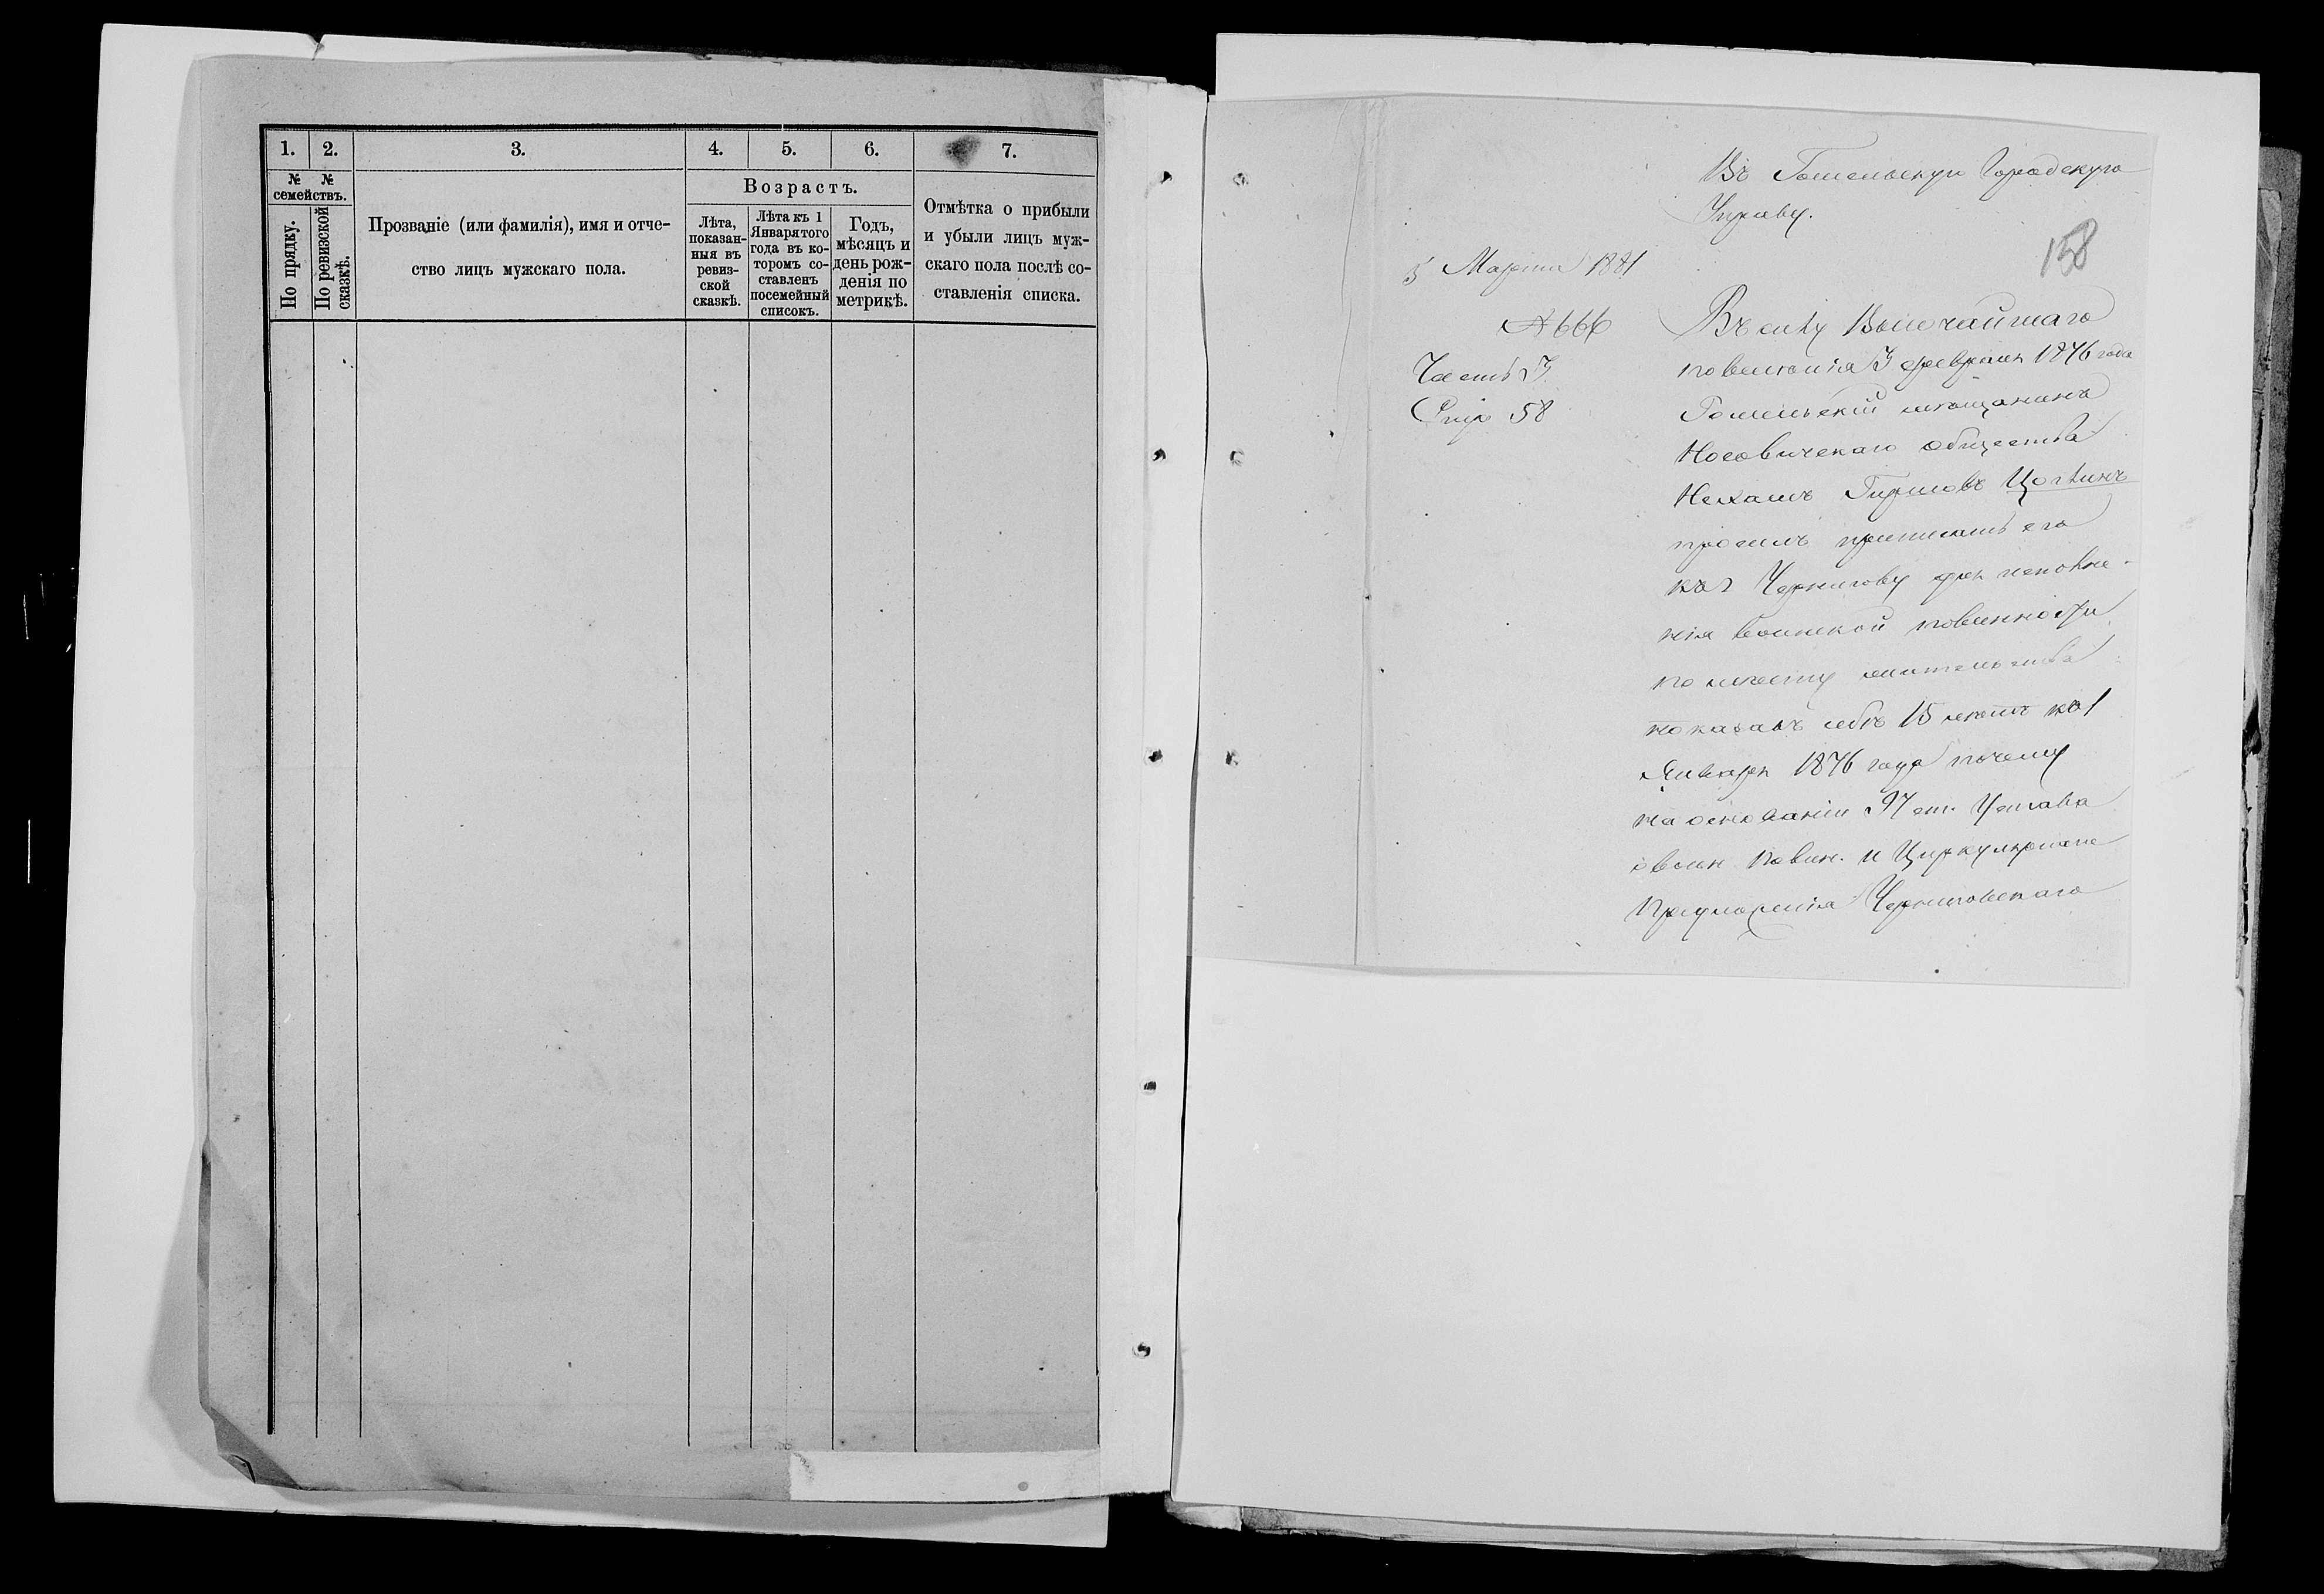 1.
2.
3.
4.
5.
6.
7.
№ №
семействъ.
По прядку.
По ревизской
сказкѣ.
Прозваніе (или фамилія), имя и отче-
ство лицъ мужскаго пола.
Возрастъ.
Лѣта,
показан-
ныя въ
ревиз-
ской
сказкѣ.
Лѣта къ 1
Января того
года въ ко-
торомъ со-
ставленъ
посемейный
списокъ.
Годъ,
мѣсяцъ и
день рож-
денія по
метрикѣ.
Отмѣтка о прибыли
и убыли лицъ муж-
скаго пола послѣ со-
ставленія списка.
Въ Гомельскую Городскую
Управу.
158
5 Марта 1881
№ 666
Часть I
Стр 58
Въ силу Высочайшаго
повелѣнія 3 февраля 1876 года
Гомельскій мѣщанинъ
Носовичскаго общества
Нехамъ Гиршовъ
просилъ приписать его
къ г Чернигову для исполне-
нія воинской повинности
по мѣсту жительства
показавъ себѣ 15 лѣтъ къ 1
Января 1876 года почему
на основаніи 97 ст. Устава
о воин повин. и
Предложенія Черниговскаго